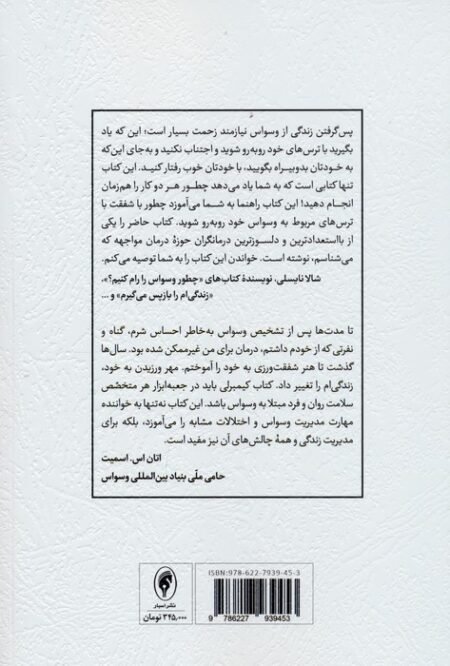 پس‌گرفتن زندگی از وسواس نیازمند زحمت بسیار است؛ این که یاد
بگیرید با ترس‌های خود روبه‌رو شوید و اجتناب نکنید و به‌جای این‌که
به خودتان بدوبیراه بگویید، با خودتان خوب رفتار کنید. این کتاب
تنها کتابی است که به شما یاد می‌دهد چطور هر دو کار را هم‌زمان
انجام دهید! این کتاب راهنما به شما می‌آموزد چطور با شفقت با
ترس‌های مربوط به وسواس خود روبه‌رو شوید. کتاب حاضر را یکی
از بااستعدادترین و دلسوزترین درمانگران حوزهٔ درمان مواجهه که
می‌شناسم، نوشته است. خواندن این کتاب را به شما توصیه می‌کنم.
شالا نایسلی، نویسندهٔ کتاب‌های «چطور وسواس را رام کنیم؟»،
«زندگی‌ام را بازپس می‌گیرم» و ...
تا مدت‌ها پس از تشخیص وسواس به‌خاطر احساس شرم، گناه و
نفرتی که از خودم داشتم، درمان برای من غیرممکن شده بود. سال‌ها
گذشت تا هنر شفقت‌ورزی به خود را آموختم. مهر ورزیدن به خود،
زندگی‌ام را تغییر داد. کتاب کیمبرلی باید در جعبه‌ابزار هر متخصص
سلامت روان و فرد مبتلا به وسواس باشد. این کتاب نه‌تنها به خواننده
مهارت مدیریت وسواس و اختلالات مشابه را می‌آموزد، بلکه برای
مدیریت زندگی و همهٔ چالش‌های آن نیز مفید است.
اتان اس. اسمیت
حامی ملّی بنیاد بین‌المللی وسواس
ISBN: 978-622-7939-45-3
9 786227 939453
نشر اسبار
۳۴۵٫۰۰۰ تومان